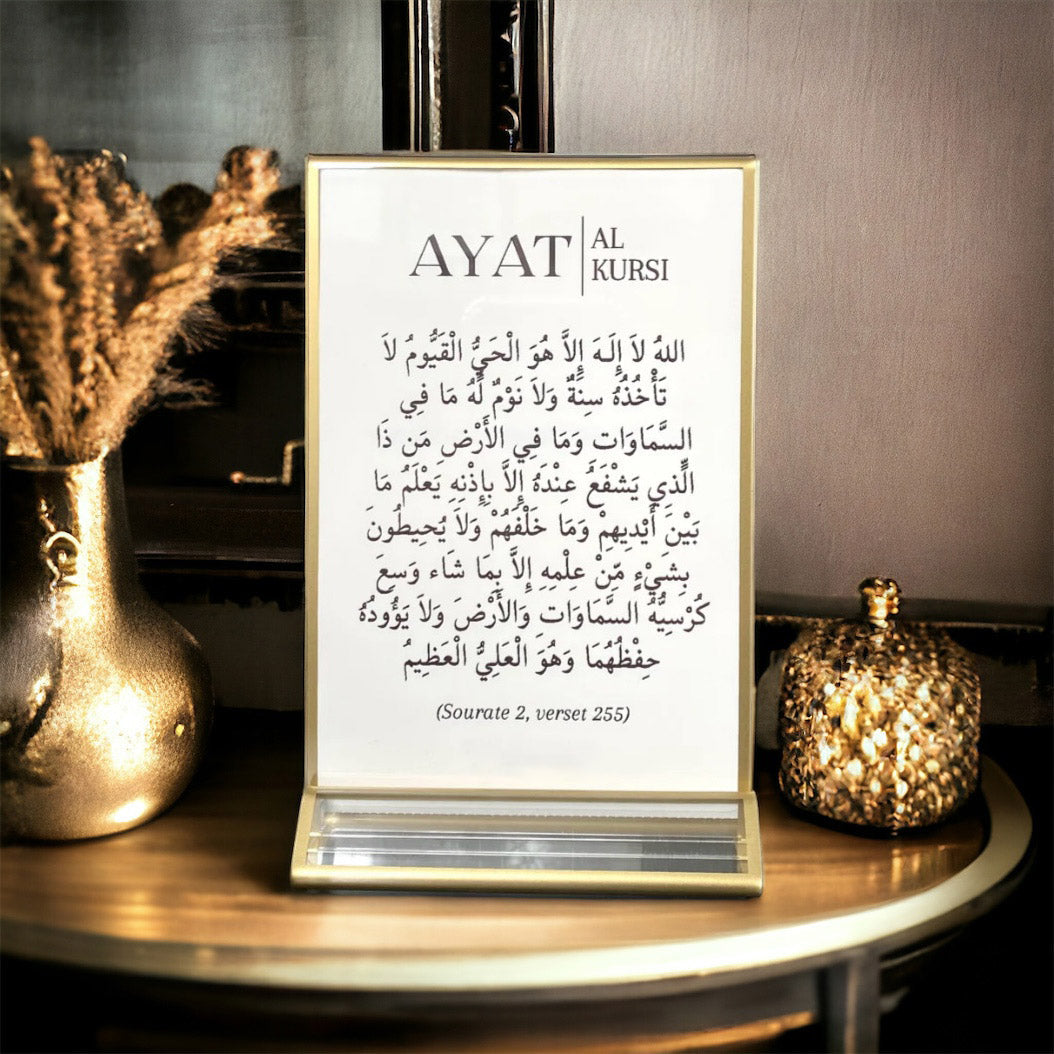 AYAT
AL
KURSI
اللهُ لاَ إِلَـهَ إِلاَّ هُوَ الْحَيُّ الْقَيُّومُ لاَ
تَأْخُذُهُ سِنَةٌ وَلاَ نَوْمٌ لَّهُ مَا فِي
السَّمَاوَاتِ وَمَا فِي الأَرْضِ مَن ذَا
الَّذِي يَشْفَعُ عِنْدَهُ إِلاَّ بِإِذْنِهِ يَعْلَمُ مَا
بَيْنَ أَيْدِيهِمْ وَمَا خَلْفَهُمْ وَلاَ يُحِيطُونَ
بِشَيْءٍ مِّنْ عِلْمِهِ إِلاَّ بِمَا شَاء وَسِعَ
كُرْسِيُّهُ السَّمَاوَاتِ وَالأَرْضَ وَلاَ يَؤُودُهُ
حِفْظُهُمَا وَهُوَ الْعَلِيُّ الْعَظِيمُ
(Sourate 2, verset 255)